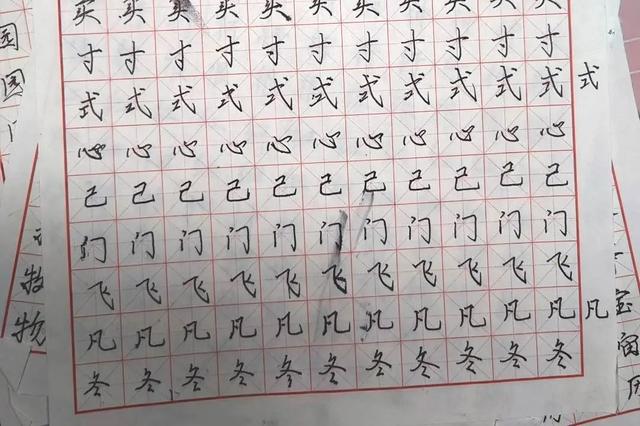 买买买买买买买买买买买
寸寸寸寸寸寸寸寸寸寸寸
式式式式式式式式式式式 式
心心心心心心心心心心心
己己己己己己己己己己己
门门门门门门门门门门门
飞飞飞飞飞飞飞飞飞飞飞
凡凡凡凡凡凡凡凡凡凡凡 凡
冬冬冬冬冬冬冬冬冬冬冬
园
园
物
物
宝
留
历